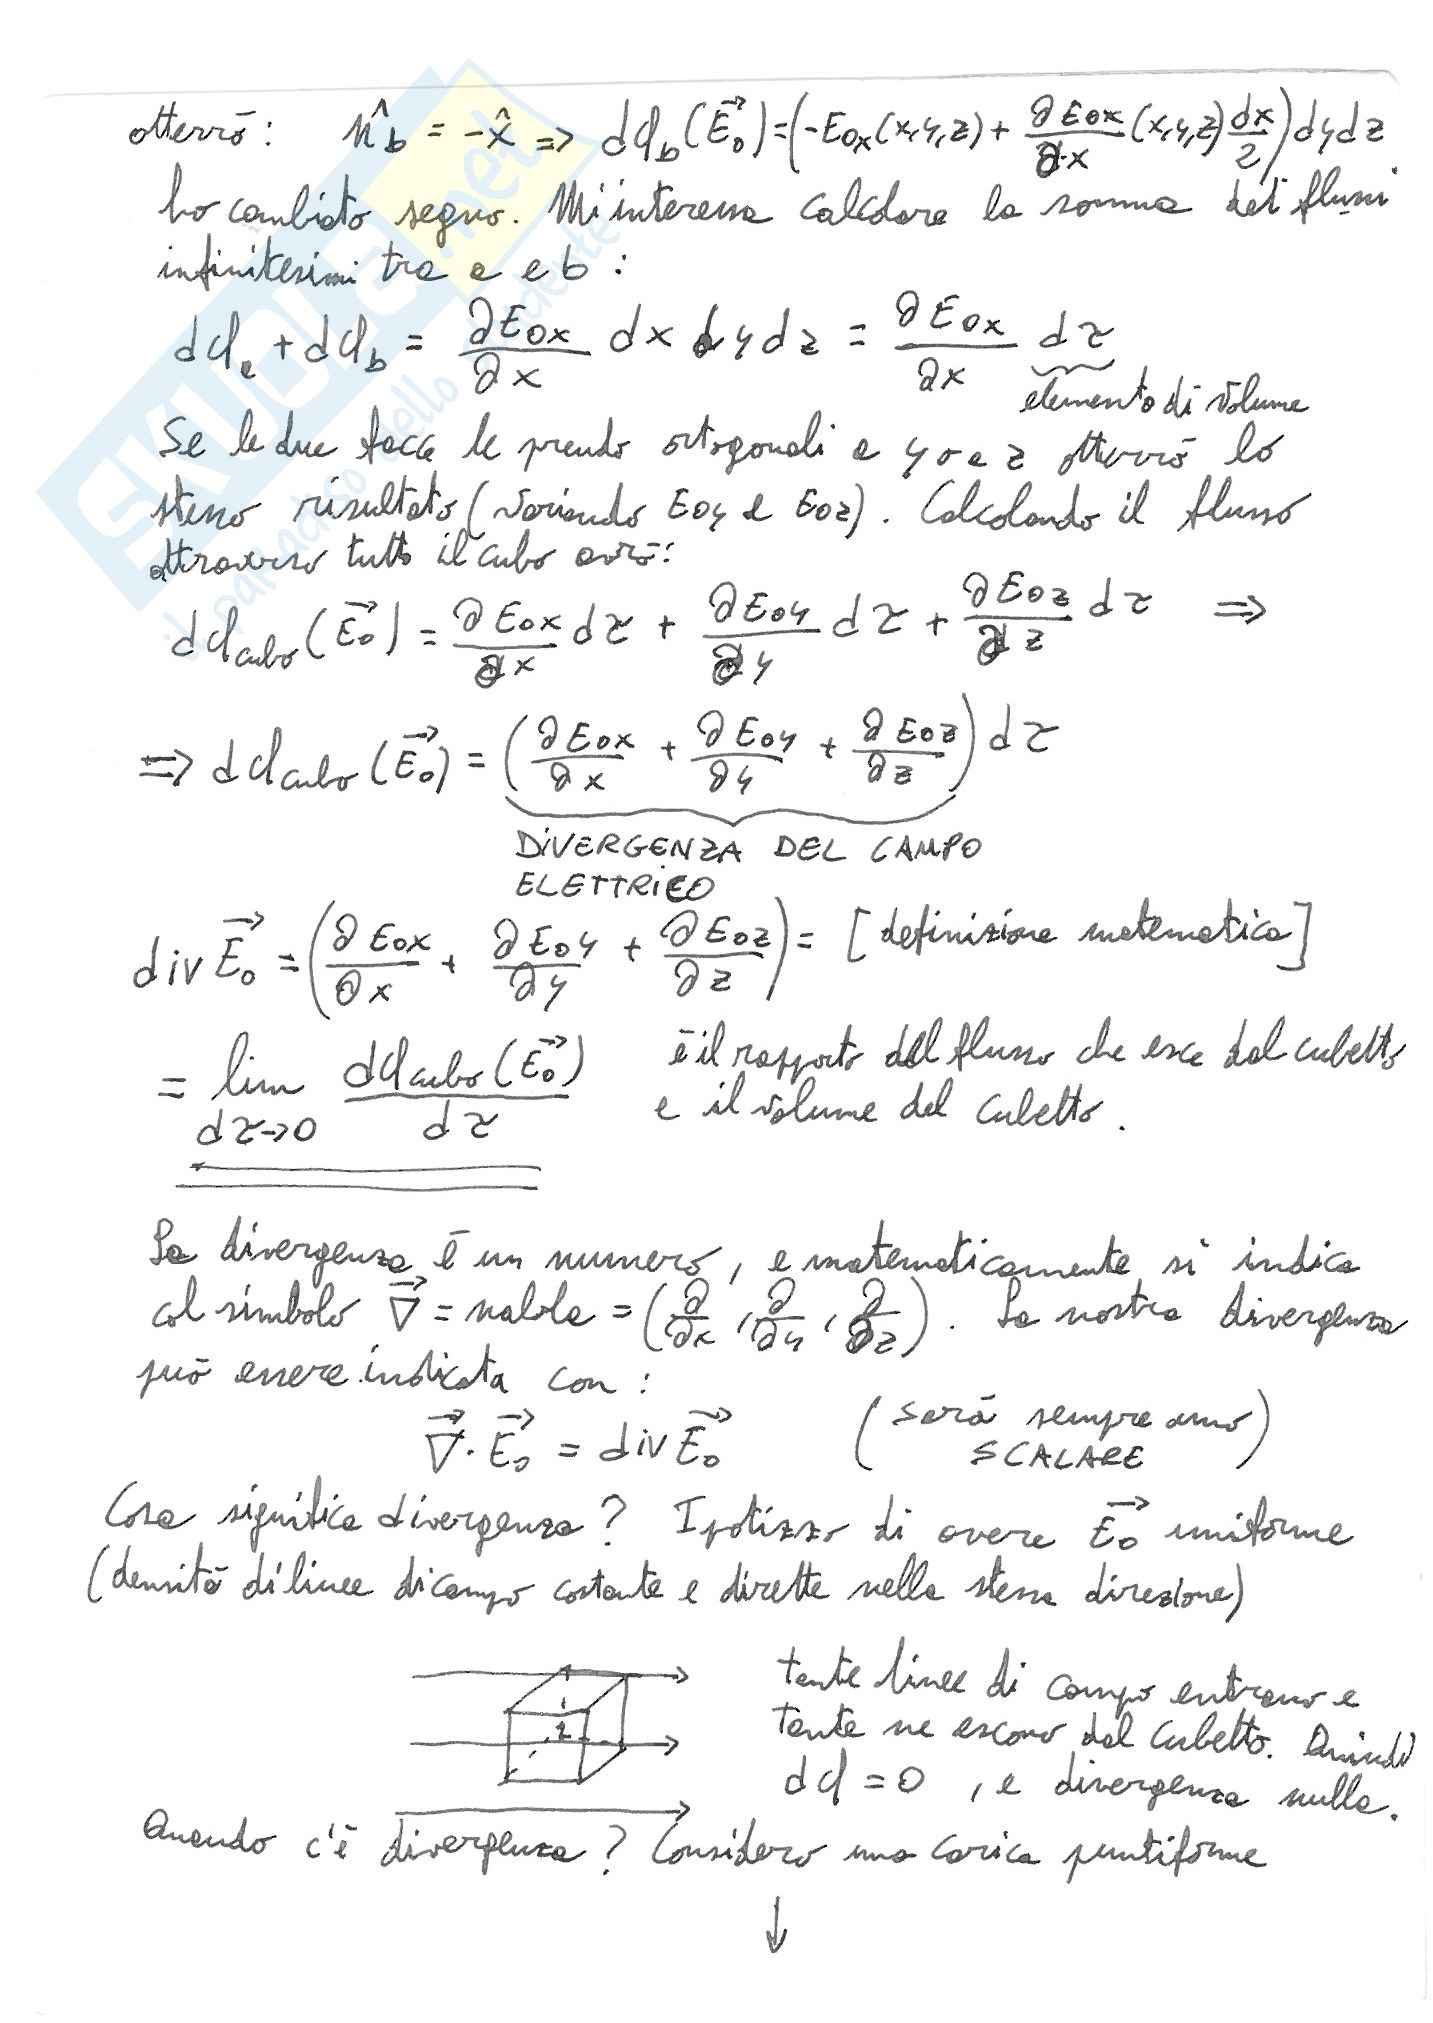 otterrò: n̂_b = -x̂ => dΦ_b(E⃗₀) = (-E₀ₓ(x,y,z) + ∂E₀ₓ/∂x (x,y,z) dx/2) dy dz
ho cambiato segno. Mi interessa calcolare la somma dei flussi
infinitesimi tra a e b :
dΦ_a + dΦ_b = ∂E₀ₓ/∂x dx dy dz = ∂E₀ₓ/∂x dτ
elemento di volume
Se le due facce le prendo ortogonali a y o a z otterrò lo
stesso risultato (variando E0y e E0z). Calcolando il flusso
attraverso tutto il cubo avrò:
dΦ_cubo(E⃗₀) = ∂E0x/∂x dτ + ∂E0y/∂y dτ + ∂E0z/∂z dτ =>
=> dΦ_cubo(E⃗₀) = (∂E0x/∂x + ∂E0y/∂y + ∂E0z/∂z) dτ
DIVERGENZA DEL CAMPO
ELETTRICO
div E⃗₀ = (∂E0x/∂x + ∂E0y/∂y + ∂E0z/∂z) = [definizione matematica]
= lim dτ→0 dΦ_cubo(E⃗₀)/dτ è il rapporto del flusso che esce dal cubetto
e il volume del cubetto.
La divergenza è un numero, e matematicamente si indica
col simbolo ∇⃗ = nabla = (∂/∂x, ∂/∂y, ∂/∂z). La nostra divergenza
può essere indicata con :
∇⃗ · E⃗₀ = div E⃗₀ (sarà sempre uno
SCALARE)
Cosa significa divergenza? Ipotizzo di avere E⃗₀ uniforme
(densità di linee di campo costante e dirette nella stessa direzione)
tante linee di campo entrano e
tante ne escono dal cubetto. Quindi
dΦ = 0 , e divergenza nulla.
Quando c'è divergenza? Considero una carica puntiforme
↓
SKUOLA.net
il paradiso dello studente